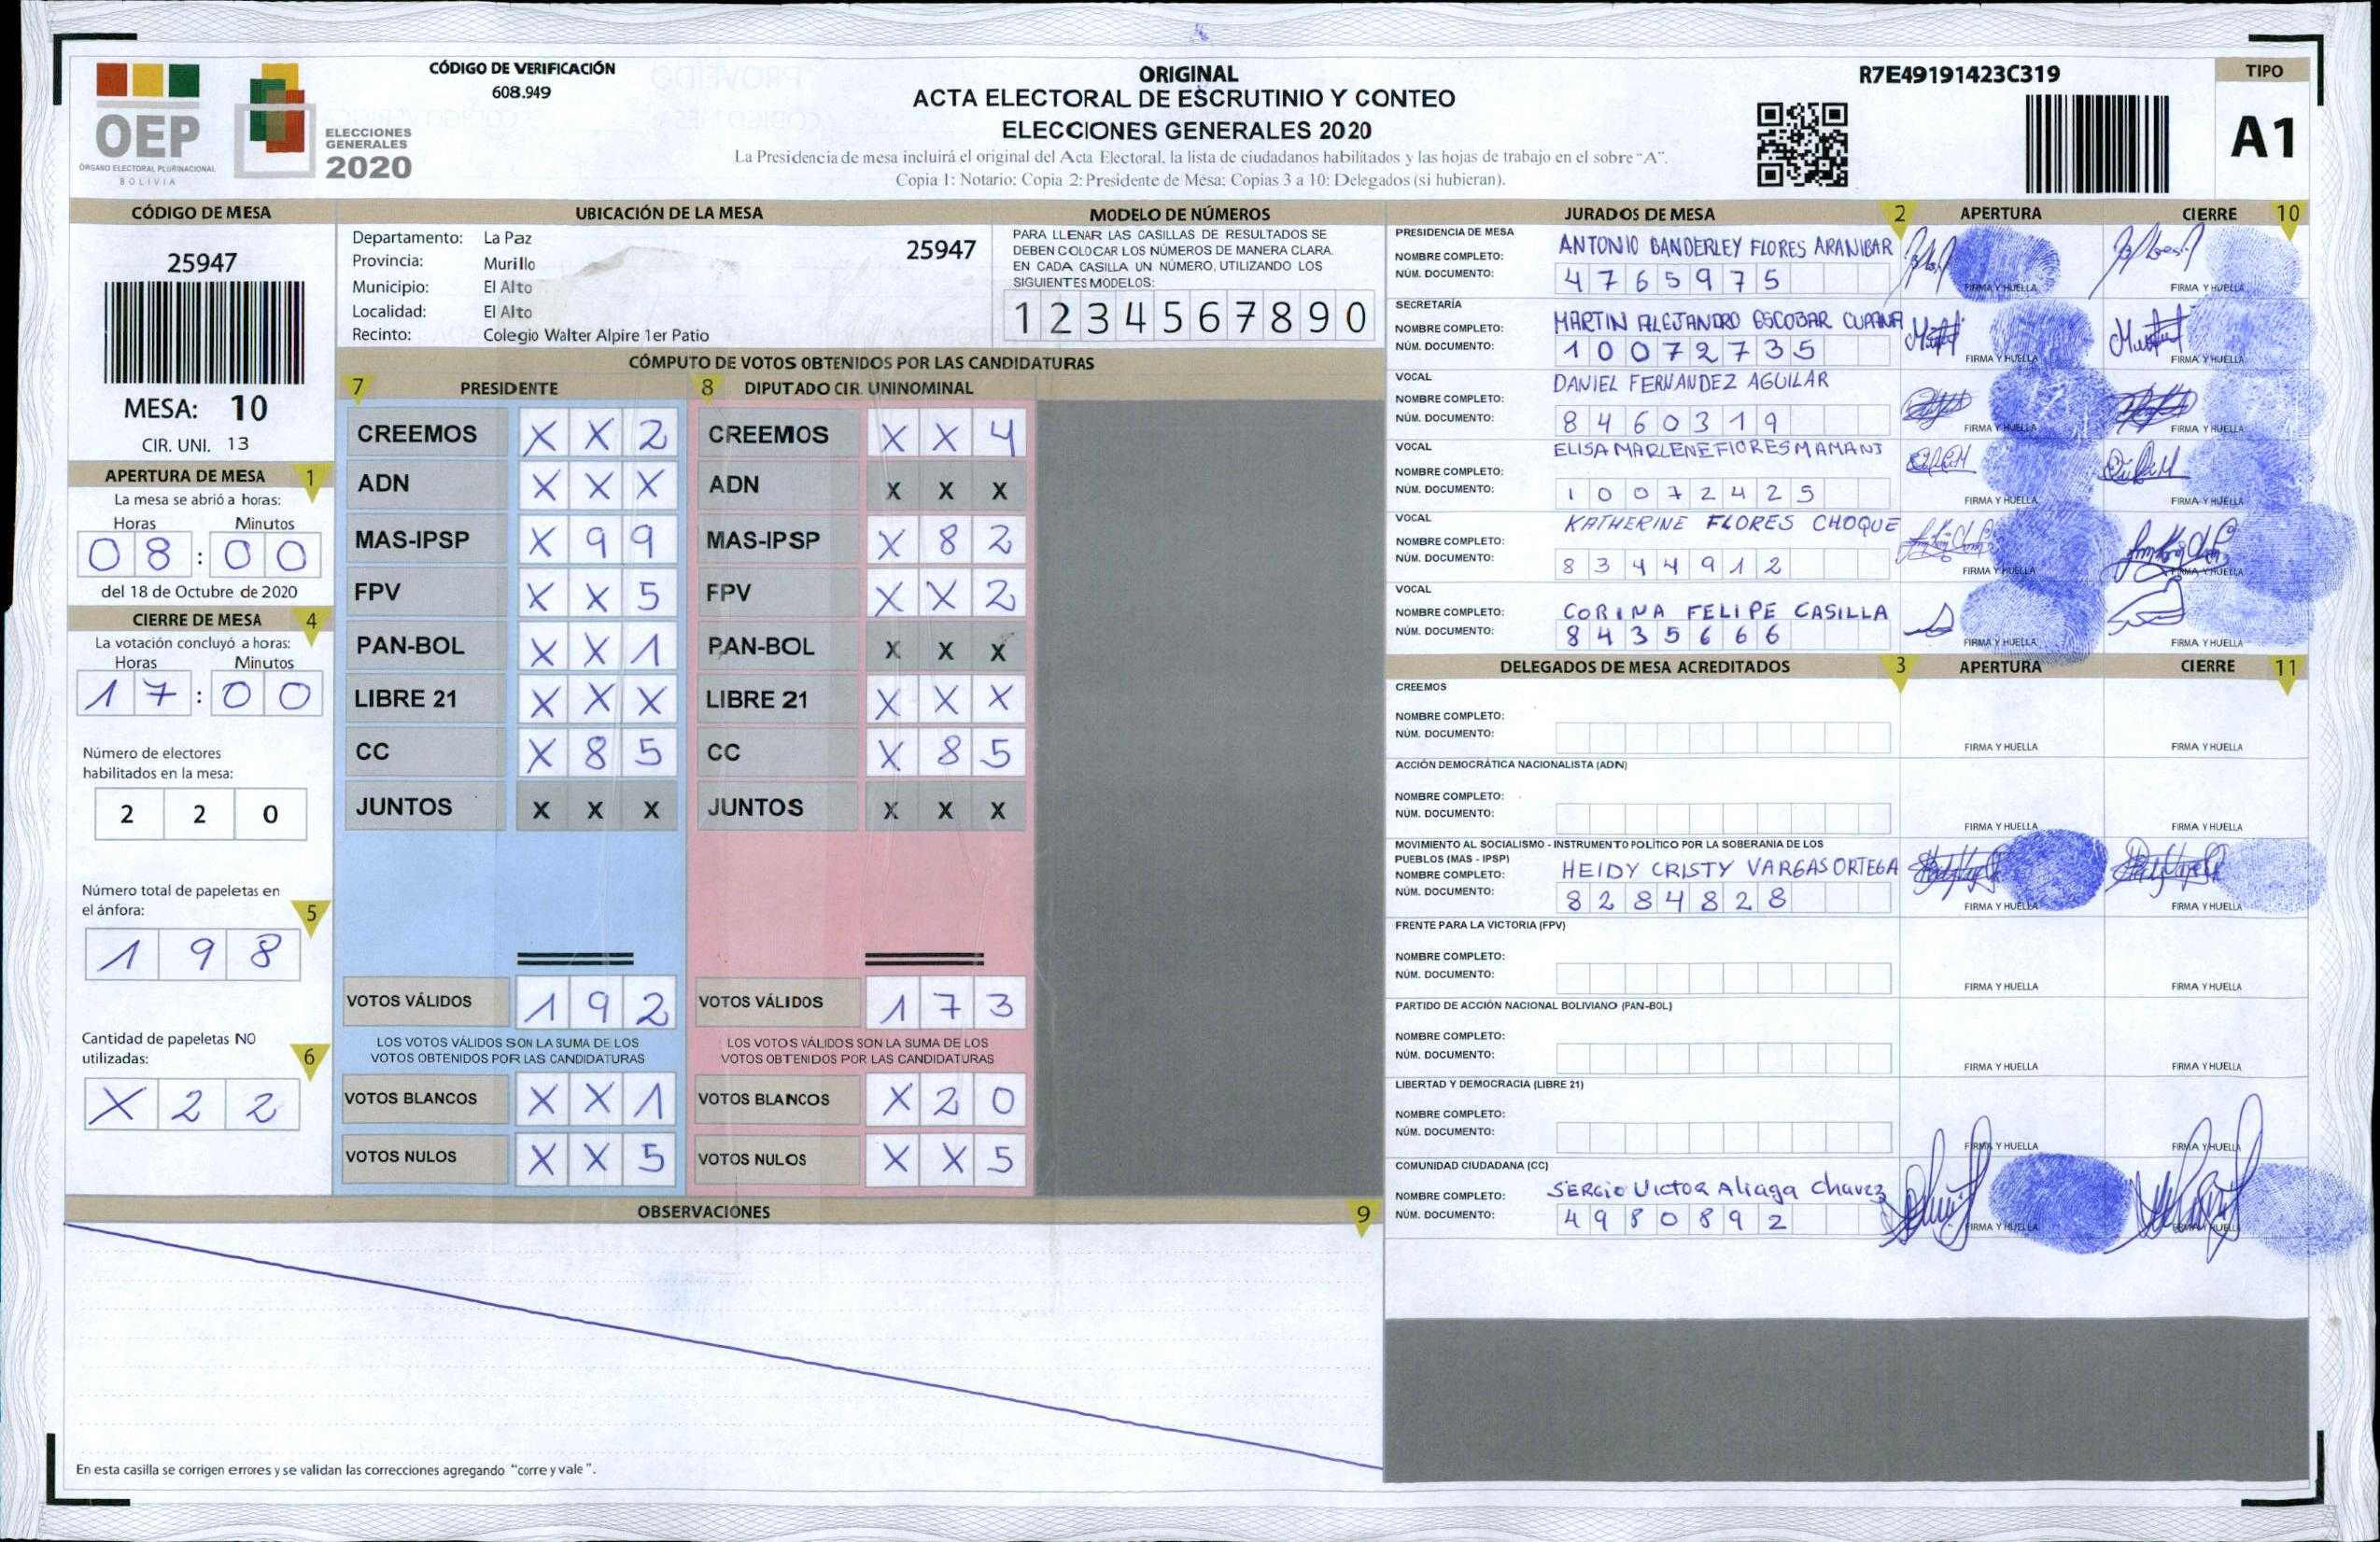 CÓDIGO DE VERIFICACIÓN
608.949
OEP
ÓRGANO ELECTORAL PLURINACIONAL
BOLIVIA
ELECCIONES
GENERALES
2020
ORIGINAL
ACTA ELECTORAL DE ESCRUTINIO Y CONTEO
ELECCIONES GENERALES 2020
La Presidencia de mesa incluirá el original del Acta Electoral, la lista de ciudadanos habilitados y las hojas de trabajo en el sobre "A".
Copia 1: Notario; Copia 2: Presidente de Mesa; Copias 3 a 10: Delegados (si hubieran).
R7E49191423C319
TIPO
A1
CÓDIGO DE MESA
25947
MESA: 10
CIR. UNI. 13
APERTURA DE MESA 1
La mesa se abrió a horas:
Horas Minutos
08:00
del 18 de Octubre de 2020
CIERRE DE MESA 4
La votación concluyó a horas:
Horas Minutos
17:00
Número de electores
habilitados en la mesa:
2 2 0
Número total de papeletas en
el ánfora: 5
1 9 8
Cantidad de papeletas NO
utilizadas: 6
X 2 2
UBICACIÓN DE LA MESA
Departamento: La Paz
Provincia: Murillo
Municipio: El Alto
Localidad: El Alto
Recinto: Colegio Walter Alpire 1er Patio
25947
MODELO DE NÚMEROS
PARA LLENAR LAS CASILLAS DE RESULTADOS SE
DEBEN COLOCAR LOS NÚMEROS DE MANERA CLARA
EN CADA CASILLA UN NÚMERO, UTILIZANDO LOS
SIGUIENTES MODELOS:
1 2 3 4 5 6 7 8 9 0
CÓMPUTO DE VOTOS OBTENIDOS POR LAS CANDIDATURAS
7 PRESIDENTE
CREEMOS X X 2
ADN X X X
MAS-IPSP X 9 9
FPV X X 5
PAN-BOL X X 1
LIBRE 21 X X X
CC X 8 5
JUNTOS X X X
VOTOS VÁLIDOS 1 9 2
LOS VOTOS VÁLIDOS SON LA SUMA DE LOS
VOTOS OBTENIDOS POR LAS CANDIDATURAS
VOTOS BLANCOS X X 1
VOTOS NULOS X X 5
8 DIPUTADO CIR. UNINOMINAL
CREEMOS X X 4
ADN X X X
MAS-IPSP X 8 2
FPV X X 2
PAN-BOL X X X
LIBRE 21 X X X
CC X 8 5
JUNTOS X X X
VOTOS VÁLIDOS 1 7 3
LOS VOTOS VÁLIDOS SON LA SUMA DE LOS
VOTOS OBTENIDOS POR LAS CANDIDATURAS
VOTOS BLANCOS X 2 0
VOTOS NULOS X X 5
OBSERVACIONES 9
En esta casilla se corrigen errores y se validan las correcciones agregando "corre y vale".
JURADOS DE MESA 2 APERTURA CIERRE 10
PRESIDENCIA DE MESA
NOMBRE COMPLETO: ANTONIO BANDERLEY FLORES ARANIBAR
NÚM. DOCUMENTO: 4765975
FIRMA Y HUELLA FIRMA Y HUELLA
SECRETARÍA
NOMBRE COMPLETO: MARTIN ALEJANDRO ESCOBAR CUPANA
NÚM. DOCUMENTO: 10072735
FIRMA Y HUELLA FIRMA Y HUELLA
VOCAL
NOMBRE COMPLETO: DANIEL FERNANDEZ AGUILAR
NÚM. DOCUMENTO: 8460319
FIRMA Y HUELLA FIRMA Y HUELLA
VOCAL
NOMBRE COMPLETO: ELISA MARLENE FLORES MAMANI
NÚM. DOCUMENTO: 10072425
FIRMA Y HUELLA FIRMA Y HUELLA
VOCAL
NOMBRE COMPLETO: KATHERINE FLORES CHOQUE
NÚM. DOCUMENTO: 8344912
FIRMA Y HUELLA FIRMA Y HUELLA
VOCAL
NOMBRE COMPLETO: CORINA FELIPE CASILLA
NÚM. DOCUMENTO: 8435666
FIRMA Y HUELLA FIRMA Y HUELLA
DELEGADOS DE MESA ACREDITADOS 3 APERTURA CIERRE 11
CREEMOS
NOMBRE COMPLETO:
NÚM. DOCUMENTO:
FIRMA Y HUELLA FIRMA Y HUELLA
ACCIÓN DEMOCRÁTICA NACIONALISTA (ADN)
NOMBRE COMPLETO:
NÚM. DOCUMENTO:
FIRMA Y HUELLA FIRMA Y HUELLA
MOVIMIENTO AL SOCIALISMO - INSTRUMENTO POLÍTICO POR LA SOBERANIA DE LOS
PUEBLOS (MAS - IPSP)
NOMBRE COMPLETO: HEIDY CRISTY VARGAS ORTEGA
NÚM. DOCUMENTO: 8284828
FIRMA Y HUELLA FIRMA Y HUELLA
FRENTE PARA LA VICTORIA (FPV)
NOMBRE COMPLETO:
NÚM. DOCUMENTO:
FIRMA Y HUELLA FIRMA Y HUELLA
PARTIDO DE ACCIÓN NACIONAL BOLIVIANO (PAN-BOL)
NOMBRE COMPLETO:
NÚM. DOCUMENTO:
FIRMA Y HUELLA FIRMA Y HUELLA
LIBERTAD Y DEMOCRACIA (LIBRE 21)
NOMBRE COMPLETO:
NÚM. DOCUMENTO:
FIRMA Y HUELLA FIRMA Y HUELLA
COMUNIDAD CIUDADANA (CC)
NOMBRE COMPLETO: SERGIO VICTOR Aliaga Chavez
NÚM. DOCUMENTO: 4980892
FIRMA Y HUELLA FIRMA Y HUELLA